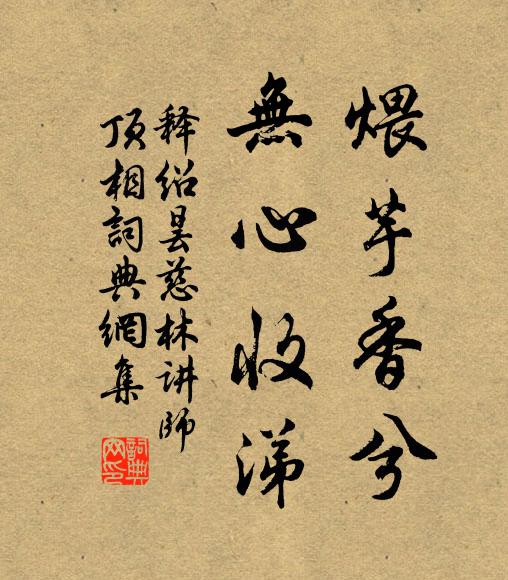 煨芋香兮
無心收涕
释绍昙慈林讲師
頂相詞典網集
詞典網印